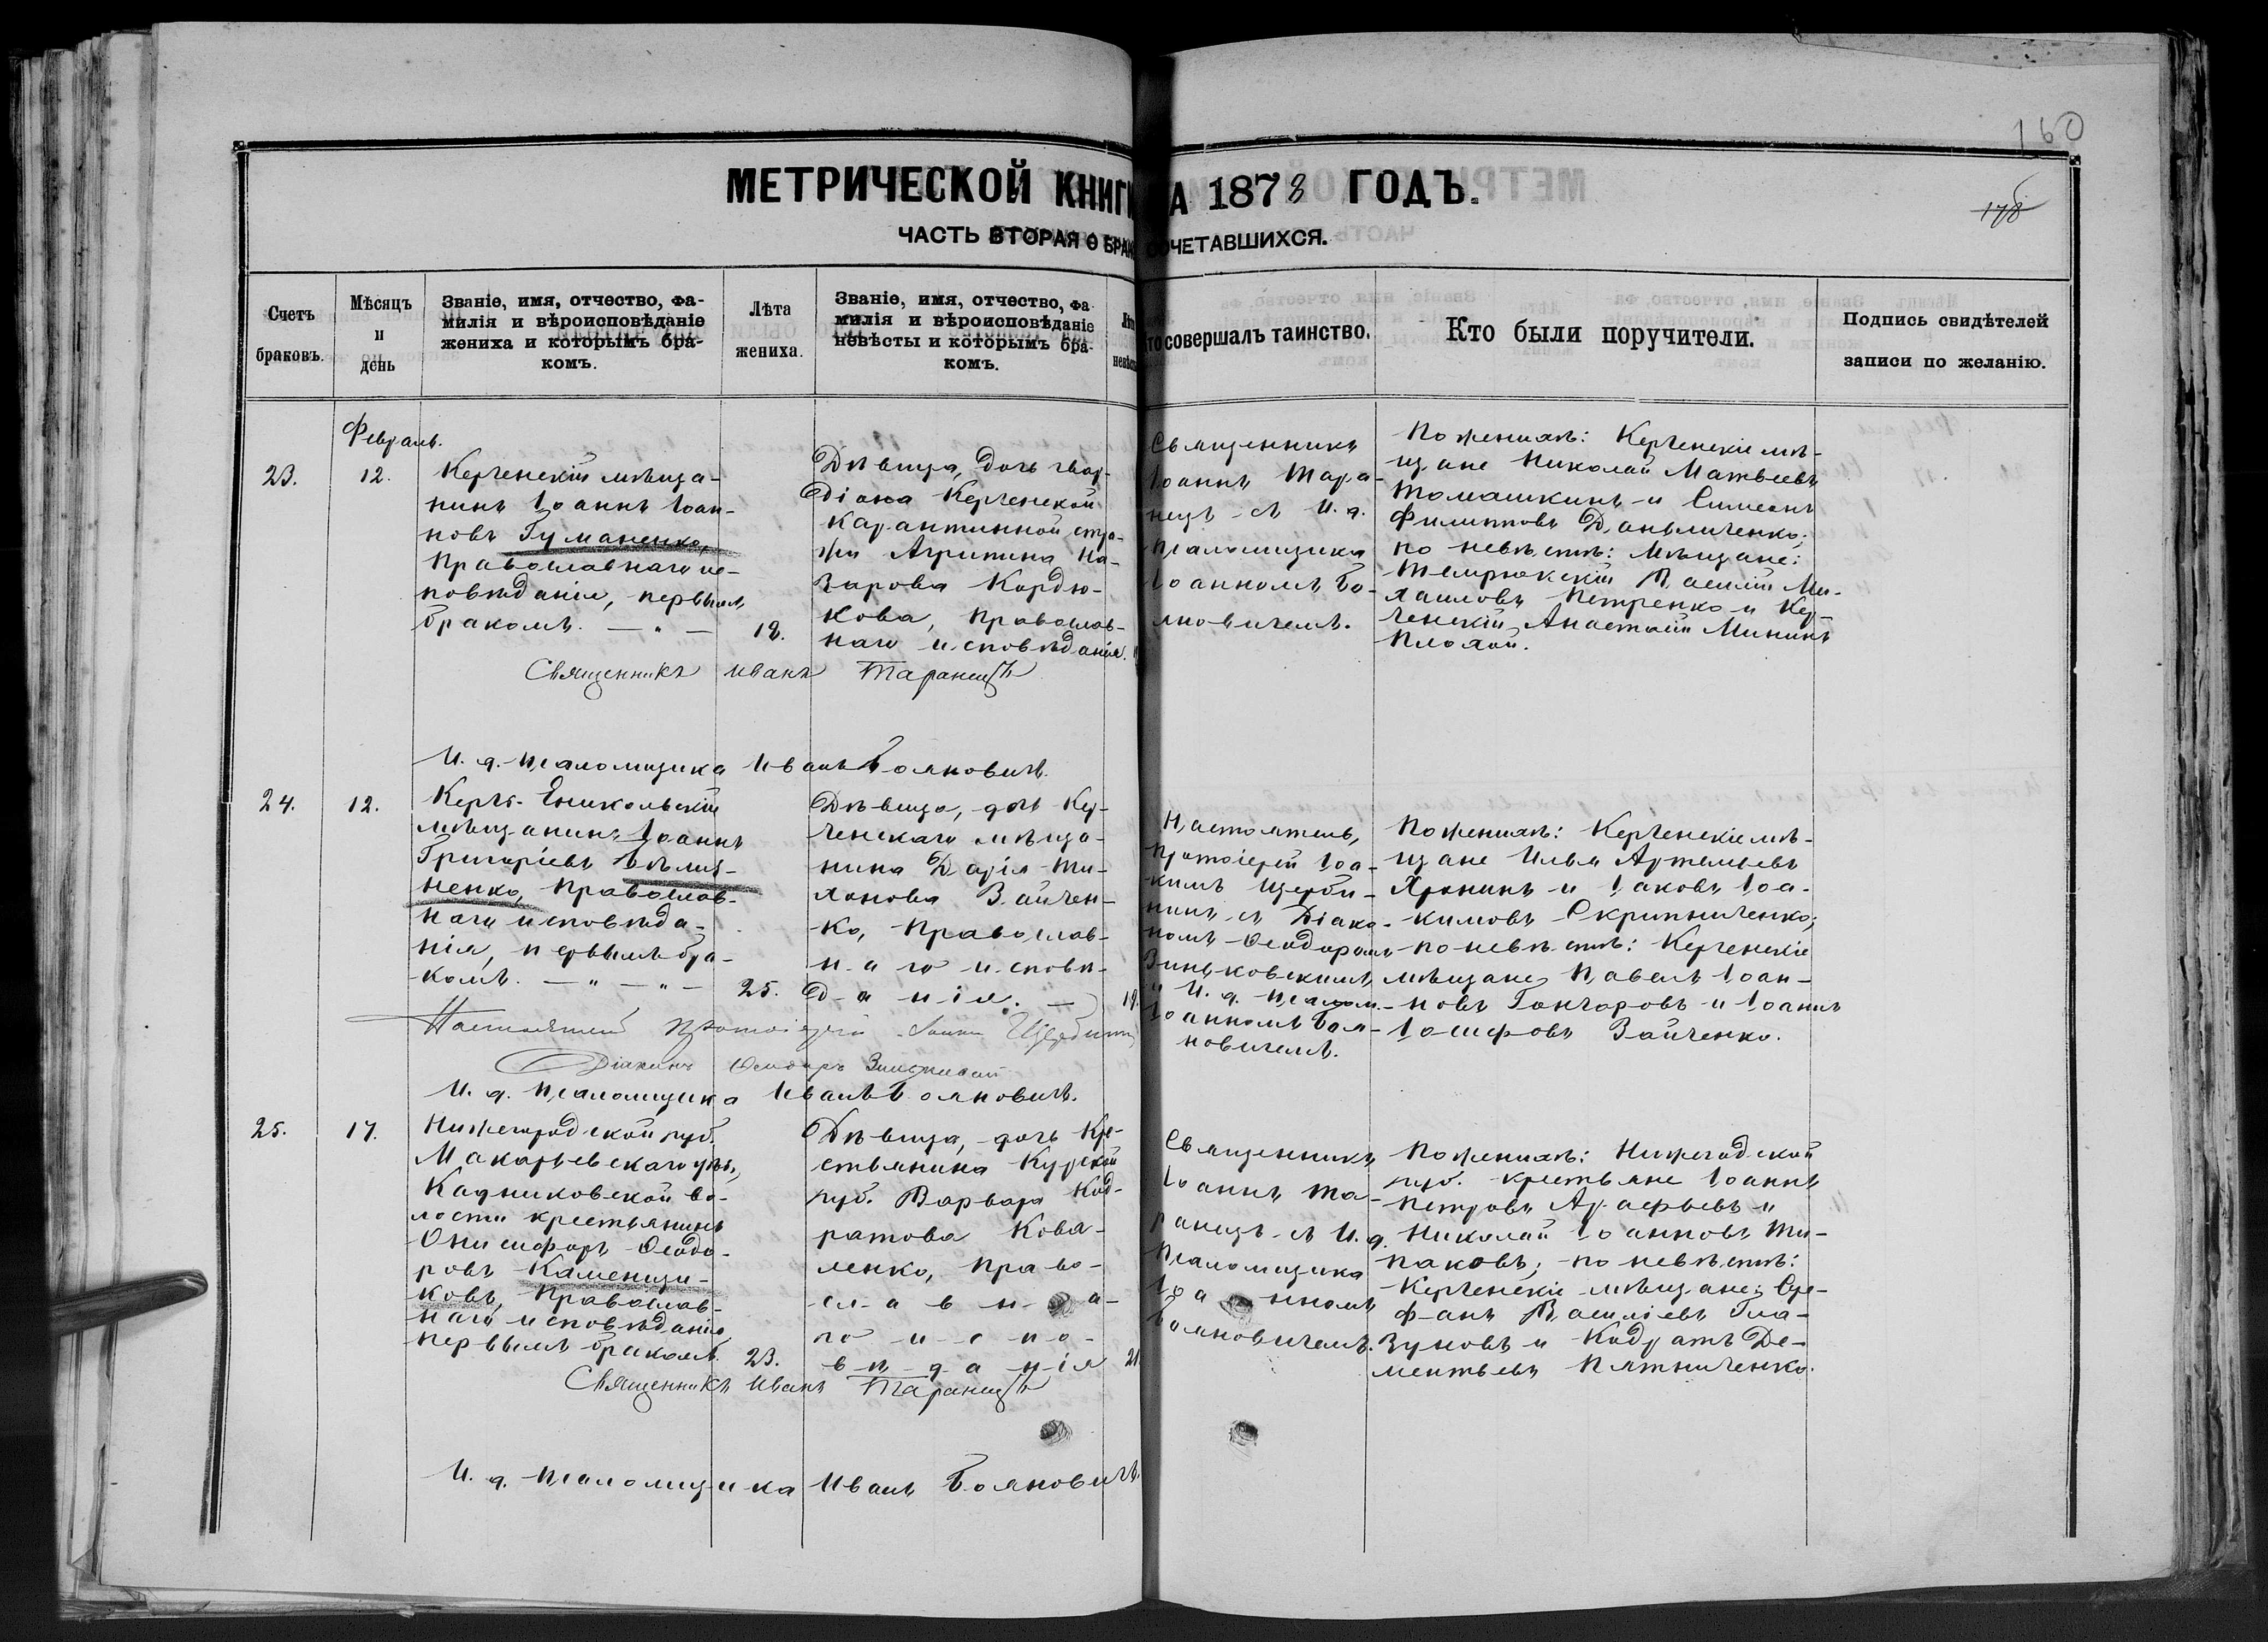 160
МЕТРИЧЕСКОЙ КНИГИ
А 1878 ГОДЪ.
178
ЧАСТЬ ВТОРАЯ О БРАК
ОЧЕТАВШИХСЯ.
Счетъ
браковъ.
Мѣсяцъ
и
день
Званіе, имя, отчество, фа-
милія и вѣроисповѣданіе
жениха и которымъ бра-
комъ.
Лѣта
жениха.
Званіе, имя, отчество, фа
милія и вѣроисповѣданіе
невѣсты и которымъ бра-
комъ.
то совершалъ таинство.
Кто были поручители.
Подпись свидѣтелей
записи по желанію.
Февраль.
23.
12.
Керченскій мѣща-
нинъ Іоаннъ Іоан-
новъ Гуманенко,
Православнаго ис-
повѣданія, первымъ
бракомъ. — " —
18.
Дѣвица, дочь гвар-
діона Керченской
Карантинной стра-
жи Агрипина На-
зарова Кордю-
кова, Православ-
наго исповѣданія.
Священникъ
Іоаннъ Тара-
нецъ съ И. д.
псаломщика
Іоанномъ Бо-
яновичемъ.
По женихѣ: Керченскіе мѣ-
щане Николай Матвѣевъ
Томашкинъ и Симеонъ
Филипповъ Данильченко;
по невѣстѣ: Мѣщане:
Темрюкскій Василій Ми-
хаиловъ Петренко и Кер-
ченскій Анастасій Мининъ
Плохой.
Священникъ Иванъ Таранецъ
И. д. псаломщика Иванъ Бояновичъ.
24.
12.
Керчь-Еникольскій
мѣщанинъ Іоаннъ
Григоріевъ
ненко, Православ-
наго исповѣда-
нія, первымъ бра-
комъ. — " — " —
25.
Дѣвица, дочь Кер-
ченскаго мѣща-
нина Дарія Ти-
хонова Зайчен-
ко, Православ-
наго исповѣ-
данія. —
19.
Настоятель,
Протоіерей Іоа-
кимъ Щерби-
нинъ съ Діако-
номъ Ѳеодоромъ
Виньковскимъ
и И. д. псалом.
Іоанномъ Боя-
новичемъ.
По женихѣ: Керченскіе мѣ-
щане Илья Артемьевъ
Хронинъ и Іаковъ Іоа-
кимовъ Скрипниченко;
по невѣстѣ: Керченскіе
мѣщане, Павелъ Іоан-
новъ Гончаровъ и Іоаннъ
Іосифовъ Зайченко.
Настоятель Протоіерей
Діаконъ Ѳеодоръ
И. д. псаломщика Иванъ Бояновичъ.
25.
17.
Нижегородской губ.
Макарьевскаго уѣз.,
Кадниковской во-
лости крестьянинъ
Онисифоръ Ѳеодо-
ровъ Каменщи-
ковъ, Православ-
наго исповѣданія,
первымъ бракомъ.
23.
Дѣвица, дочь Кре-
стьянина Курской
губ. Варвара Код-
ратова Кова-
ленко, Право-
славна-
го испо-
вѣданія
21
Священникъ
Іоаннъ Та-
ранецъ съ И. д.
Псаломщика
Іоанномъ
Бояновичемъ.
По женихѣ: Нижегодской
губ. крестьяне Іоаннъ
Петровъ Арафьевъ и
Николай Іоанновъ Ти-
паковъ; по невѣстѣ:
Керченскіе мѣщане: Сте-
фанъ Василіевъ Гла-
зуновъ и Кодратъ Де-
ментьевъ Пятниченко.
Священникъ Иванъ Таранецъ
И. д. псаломщика Иванъ Бояновичъ.